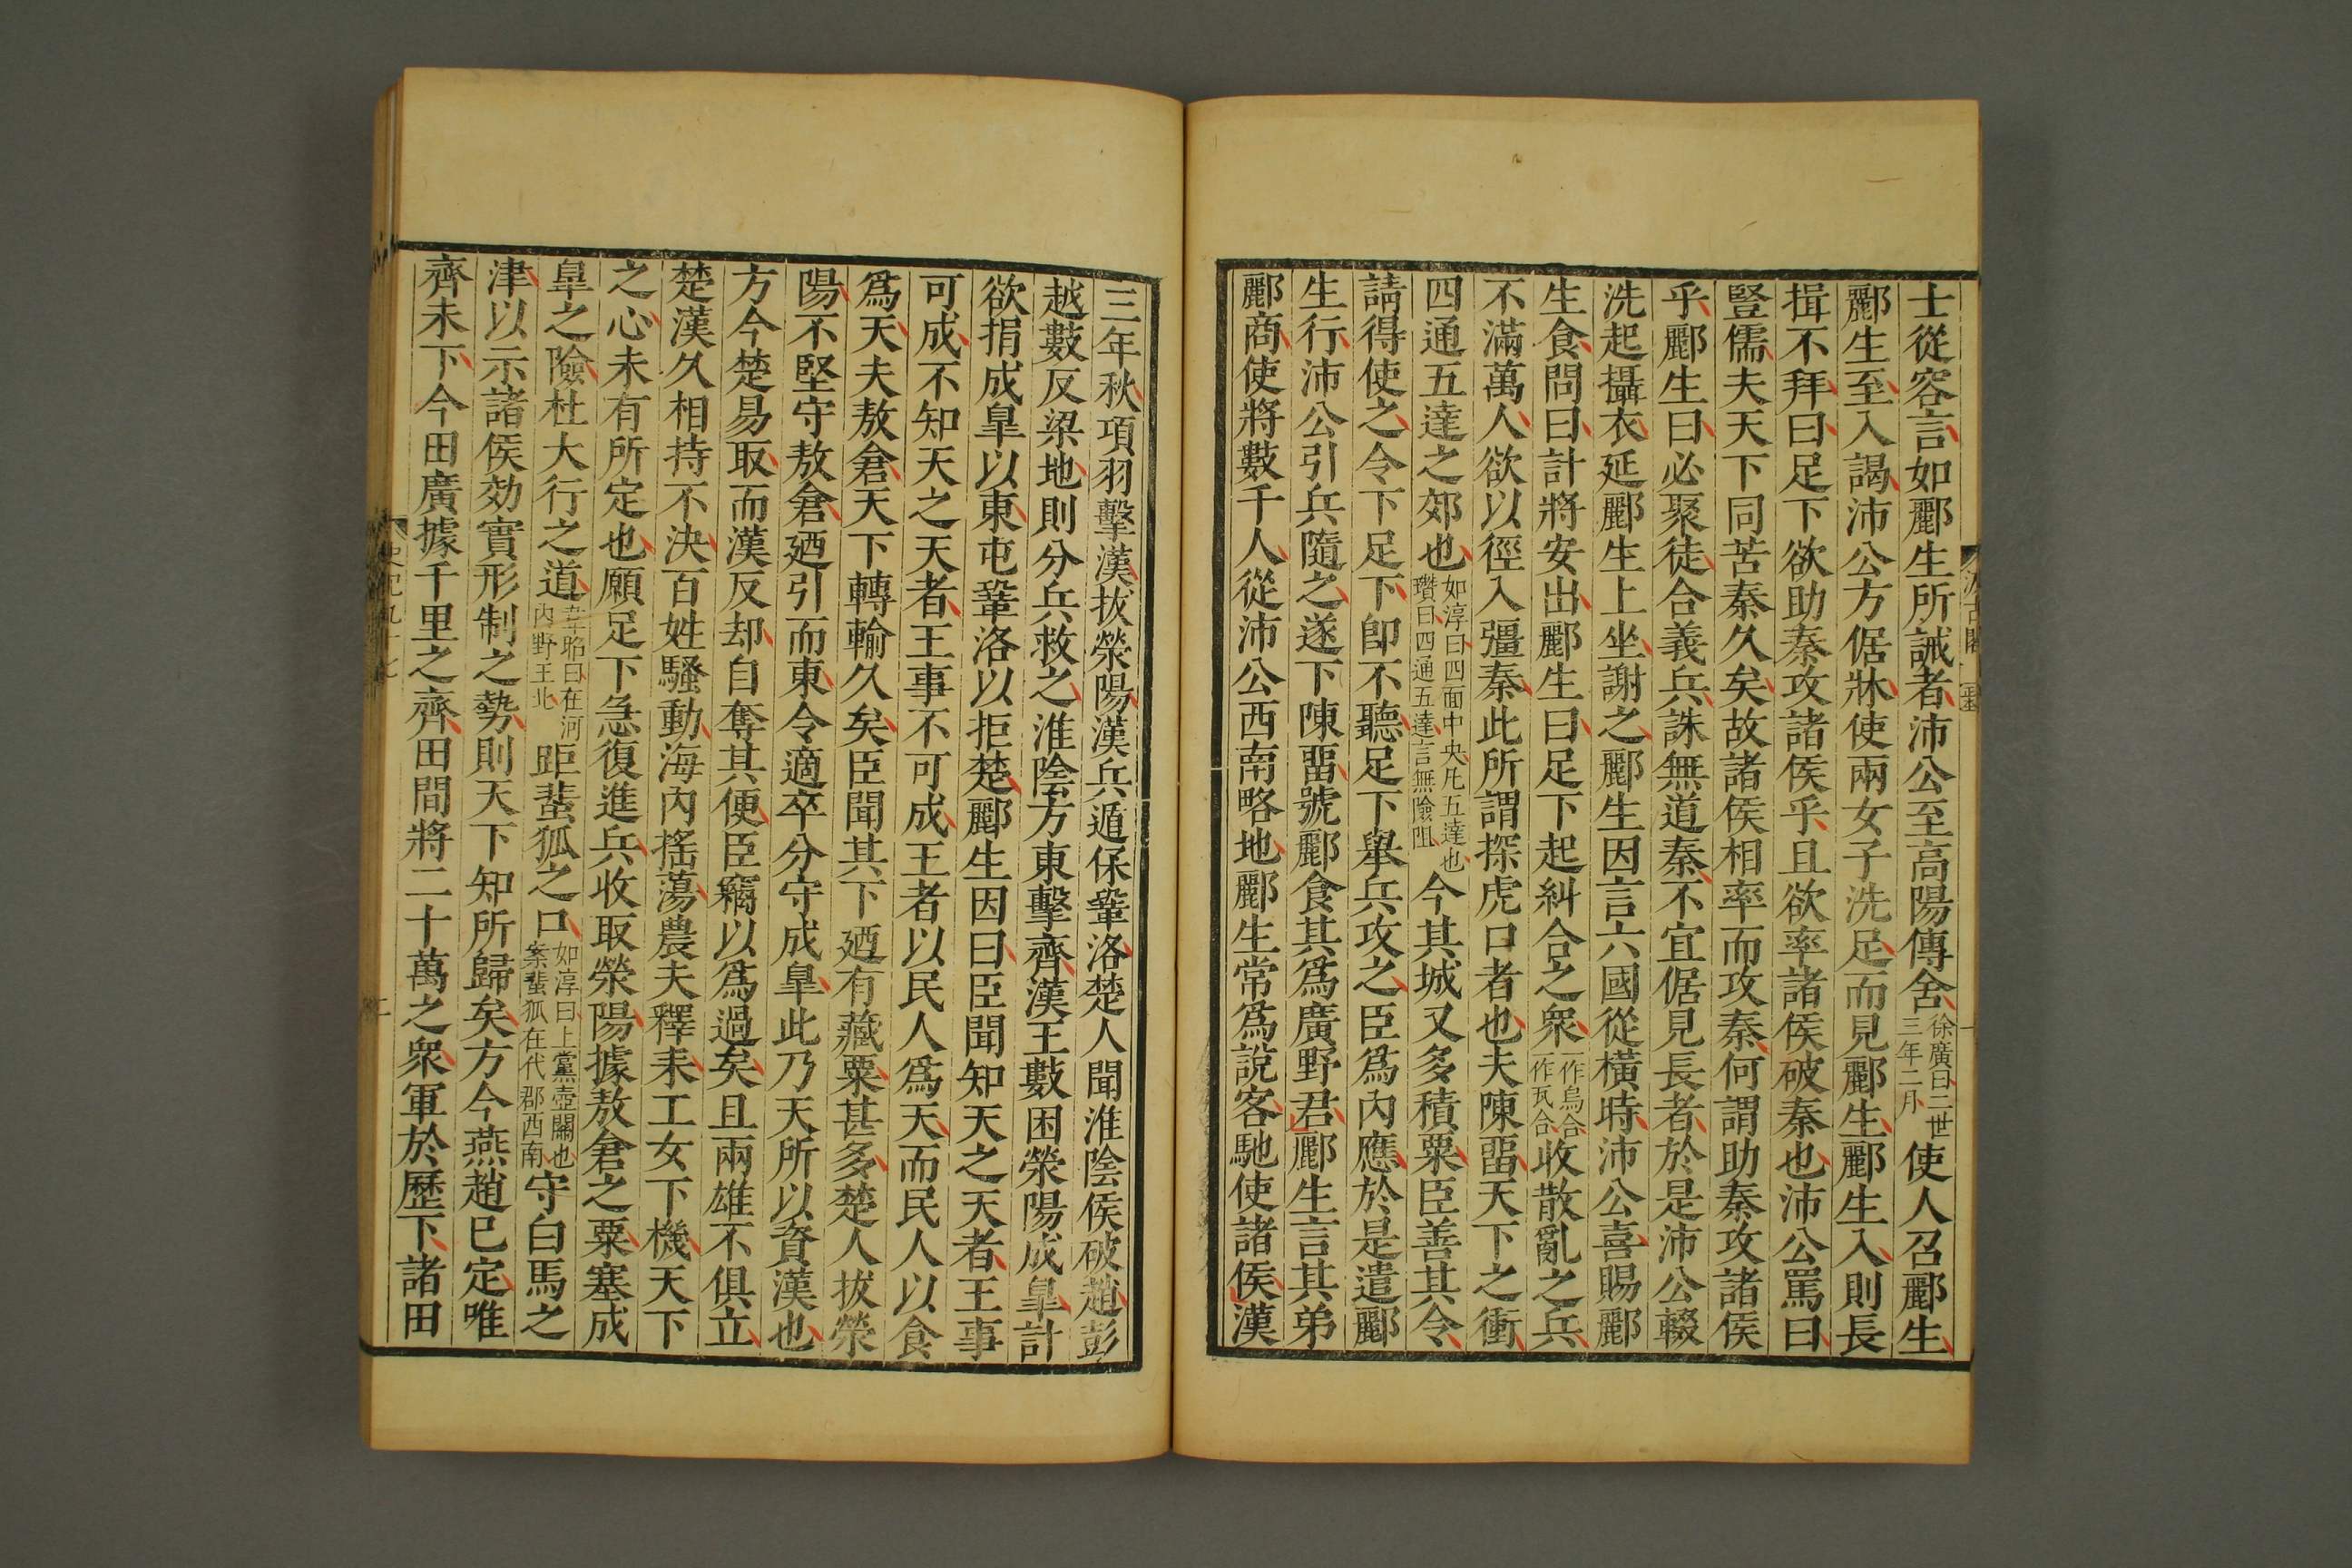 士從容言如酈生所誡者沛公至高陽傳舍徐廣曰二世三年二月使人召酈生
酈生至入謁沛公方倨牀使兩女子洗足而見酈生酈生入則長
揖不拜曰足下欲助秦攻諸侯乎且欲率諸侯破秦也沛公罵曰
豎儒夫天下同苦秦久矣故諸侯相率而攻秦何謂助秦攻諸侯
乎酈生曰必聚徒合義兵誅無道秦不宜倨見長者於是沛公輟
洗起攝衣延酈生上坐謝之酈生因言六國從橫時沛公喜賜酈
生食問曰計將安出酈生曰足下起糾合之衆一作烏合一作瓦合收散亂之兵
不滿萬人欲以徑入彊秦此所謂探虎口者也夫陳畱天下之衝
四通五達之郊也如淳曰四面中央凡五達也瓚曰四通五達言無險阻今其城又多積粟臣善其令
請得使之令下足下卽不聽足下舉兵攻之臣爲內應於是遣酈
生行沛公引兵隨之遂下陳畱號酈食其爲廣野君酈生言其弟
酈商使將數千人從沛公西南略地酈生常爲說客馳使諸侯漢
三年秋項羽擊漢拔滎陽漢兵遁保鞏洛楚人聞淮陰侯破趙彭
越數反梁地則分兵救之淮陰方東擊齊漢王數困滎陽成臯計
欲捐成臯以東屯鞏洛以拒楚酈生因曰臣聞知天之天者王事
可成不知天之天者王事不可成王者以民人爲天而民人以食
爲天夫敖倉天下轉輸久矣臣聞其下廼有藏粟甚多楚人拔滎
陽不堅守敖倉廼引而東令適卒分守成臯此乃天所以資漢也
方今楚易取而漢反却自奪其便臣竊以爲過矣且兩雄不俱立
楚漢久相持不決百姓騷動海內搖蕩農夫釋耒工女下機天下
之心未有所定也願足下急復進兵收取滎陽據敖倉之粟塞成
臯之險杜大行之道韋昭曰在河內野王北距蜚狐之口如淳曰上黨壺關也案蜚狐在代郡西南守白馬之
津以示諸侯効實形制之勢則天下知所歸矣方今燕趙已定唯
齊未下今田廣據千里之齊田間將二十萬之衆軍於歷下諸田